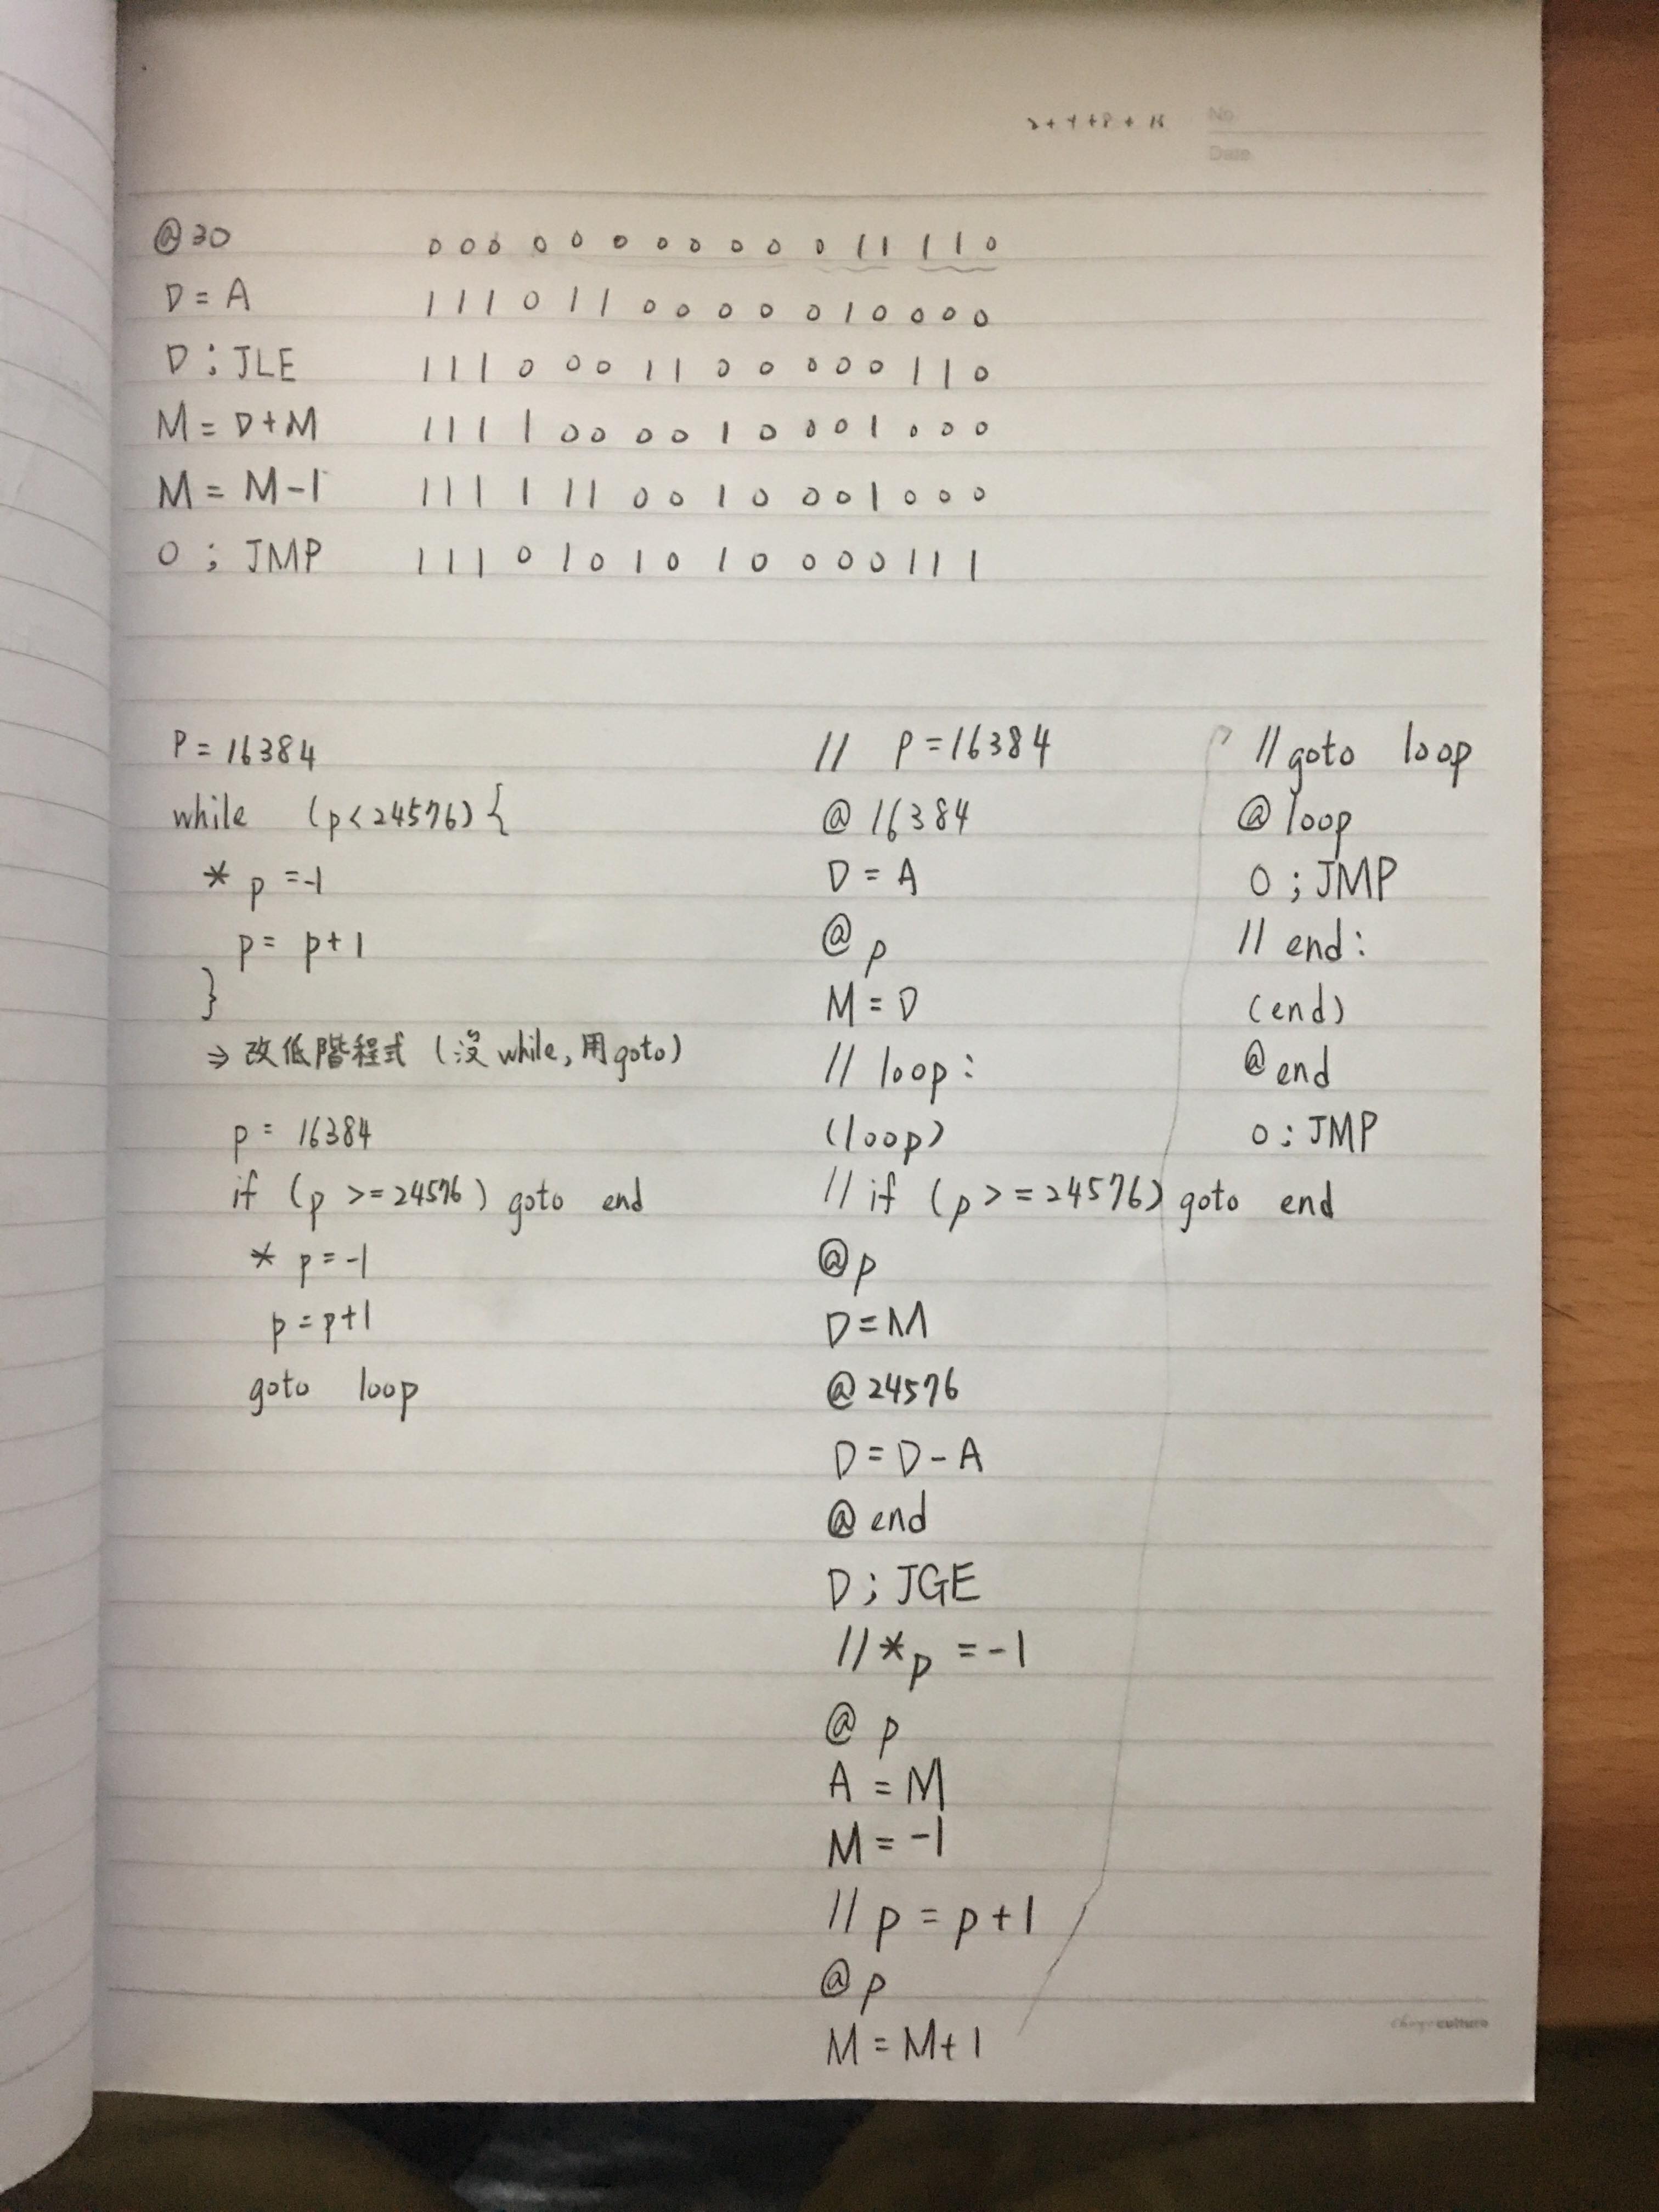 2+4+8+16
No.
Date
@30 0000000000011110
D=A 1110110000010000
D;JLE 1110001100000110
M=D+M 1111000010001000
M=M-1 1111110010001000
0;JMP 1110101010000111
P=16384
while (p<24576){
*p=-1
p=p+1
}
⇒改低階程式(沒while,用goto)
p=16384
if (p>=24576) goto end
*p=-1
p=p+1
goto loop
// p=16384
@16384
D=A
@p
M=D
// loop:
(loop)
//if (p>=24576) goto end
@p
D=M
@24576
D=D-A
@end
D;JGE
//*p=-1
@p
A=M
M=-1
//p=p+1
@p
M=M+1
//goto loop
@loop
0;JMP
//end:
(end)
@end
0;JMP
culture